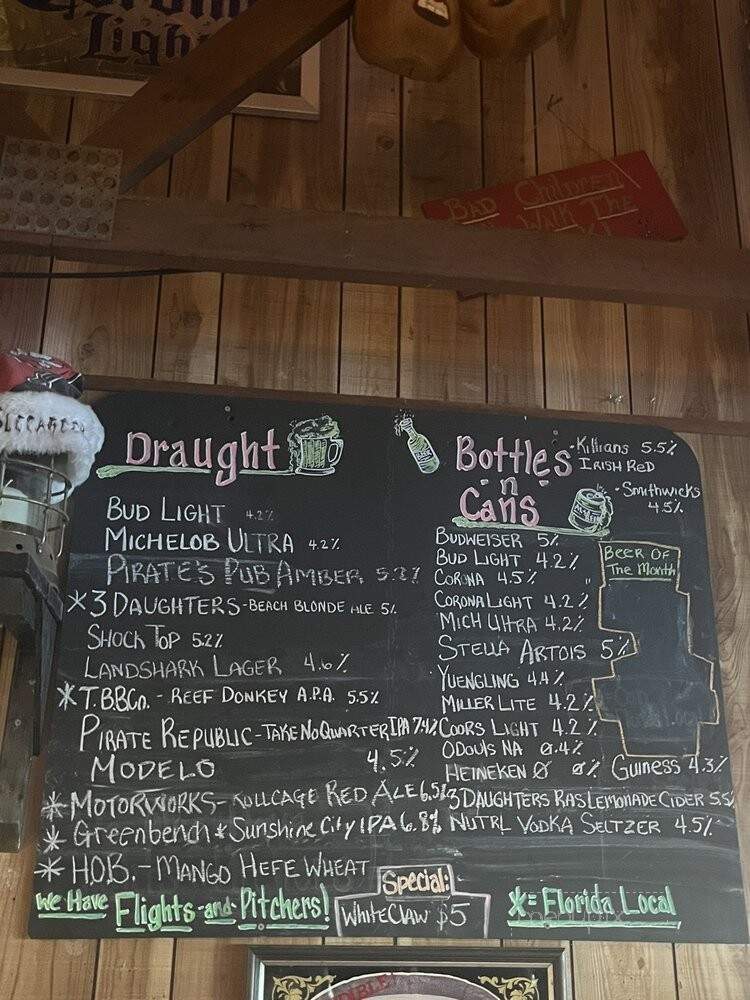 Corona
Light
BAD CHILDREN
WALK THE
BUCCANEERS
Draught
BUD LIGHT 4.2%
MICHELOB ULTRA 4.2%
PIRATE'S PUB AMBER 5.2%
*3 DAUGHTERS-BEACH BLONDE ALE 5%
SHOCK TOP 5.2%
LANDSHARK LAGER 4.6%
*T.B.B.Co. - REEF DONKEY A.P.A. 5.5%
PIRATE REPUBLIC-TAKE NO QUARTER IPA 7.4%
MODELO 4.5%
*MOTORWORKS- ROLLCAGE RED ALE 6.5%
*Greenbench * Sunshine City IPA 6.8%
*H.O.B.-MANGO HEFE WHEAT
We Have Flights -and- Pitchers!
Special:
WHITECLAW $5
Bottles
-n-
Cans
-Killians 5.5%
IRISH RED
-Smithwicks
4.5%
BUDWEISER 5%
BUD LIGHT 4.2%
CORONA 4.5%
CORONA LIGHT 4.2%
MICH ULTRA 4.2%
STELLA ARTOIS 5%
YUENGLING 4.4%
MILLER LITE 4.2%
COORS LIGHT 4.2%
ODOULS NA 0.4%
HEINEKEN Ø 0% Guiness 4.3%
3 DAUGHTERS RASLEMONADE CIDER 5.5%
NUTRL VODKA SELTZER 4.5%
BEER OF
The MONTH
*= Florida Local